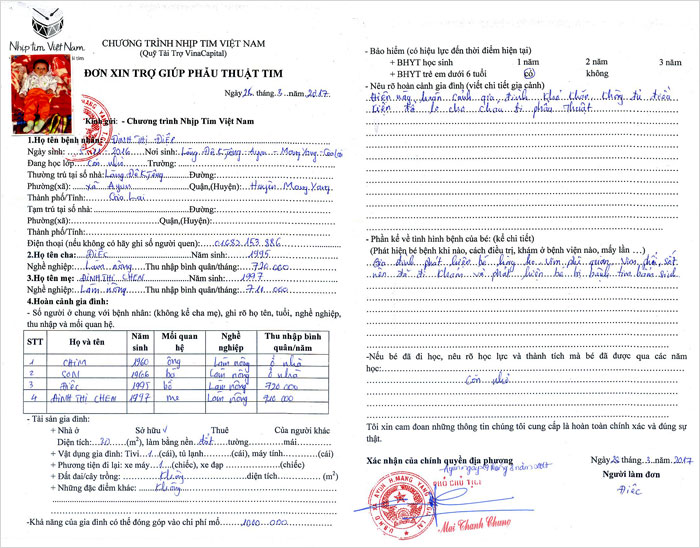 Nhịp tim Việt Nam
CHƯƠNG TRÌNH NHỊP TIM VIỆT NAM
(Quỹ Tài Trợ VinaCapital)
ĐƠN XIN TRỢ GIÚP PHẪU THUẬT TIM
Ngày 26 tháng 3 năm 2017
Kính gửi: - Chương trình Nhịp Tim Việt Nam
1.Họ tên bệnh nhân: ĐINH THỊ ĐIỆP
Ngày sinh: 2016 Nơi sinh: Làng Đê Ayun - Mang Yang - Gia Lai
Đang học lớp Còn nhỏ Trường:
Thường trú tại số nhà: Làng Đê Đường:
Phường(xã): xã Ayun Quận,(Huyện): Huyện Mang Yang
Thành phố/Tỉnh: Gia Lai
Tạm trú tại số nhà: Đường:
Phường(xã): Quận,(Huyện):
Thành phố/Tỉnh:
Điện thoại (nếu không có hãy ghi số người quen): 01682.153.886
2.Họ tên cha: ĐIẾC Năm sinh: 1995
Nghề nghiệp: Làm nông Thu nhập bình quân/tháng: 720.000
3.Họ tên mẹ: ĐINH THỊ CHEN Năm sinh: 1997
Nghề nghiệp: Làm nông Thu nhập bình quân/tháng: 710.000
4.Hoàn cảnh gia đình:
- Số người ở chung với bệnh nhân: (không kể cha mẹ), ghi rõ họ tên, tuổi, nghề nghiệp,
thu nhập và mối quan hệ.
STT Họ và tên Năm sinh Mối quan hệ Nghề nghiệp Thu nhập bình quân/năm
1 CHIM 1960 ông Làm nông ở nhà
2 1966 bà Làm nông ở nhà
3 Điếc 1995 bố Làm nông 720 000
4 ĐINH THỊ CHEN 1997 mẹ Làm nông
- Tài sản gia đình:
+ Nhà ở Sở hữu √ Thuê Của người khác
Diện tích: 30 (m²), làm bằng nền đất tường mái
+ Vật dụng gia đình: Tivi 1 (cái), tủ lạnh (cái), máy tính (cái)
+ Phương tiện đi lại: xe máy 1 (chiếc), xe đạp (chiếc)
+ Đất đai/cây trồng: không diện tích (m²)
+ Những đặc điểm khác: không
-Khả năng của gia đình có thể đóng góp vào chi phí mổ
- Bảo hiểm (có hiệu lực đến thời điểm hiện tại)
+ BHYT học sinh 1 năm 2 năm 3 năm
+ BHYT trẻ em dưới 6 tuổi có không
- Nêu rõ hoàn cảnh gia đình (viết chi tiết gia cảnh)
Hiện nay hoàn cảnh gia đình khó khăn không đủ
tiền để lo cho cháu đi phẫu thuật
- Phần kể về tình hình bệnh của bé: (kể chi tiết)
(Phát hiện, bé bệnh khi nào, cách điều trị, khám ở bệnh viện nào, mấy lần …)
Gia đình phát hiện bé viêm phế quản, sốt
nên đã đi khám và phát hiện bé bị bệnh tim bẩm sinh
-Nếu bé đã đi học, nêu rõ học lực và thành tích mà bé đã được qua các năm
học: Còn nhỏ
Tôi xin cam đoan những thông tin chúng tôi cung cấp là hoàn toàn chính xác và đúng sự
thật.
Xác nhận của chính quyền địa phương Ngày 26 tháng 3 năm 2017
Người làm đơn
PHÓ CHỦ TỊCH
Điếc
Mai Thanh Chung